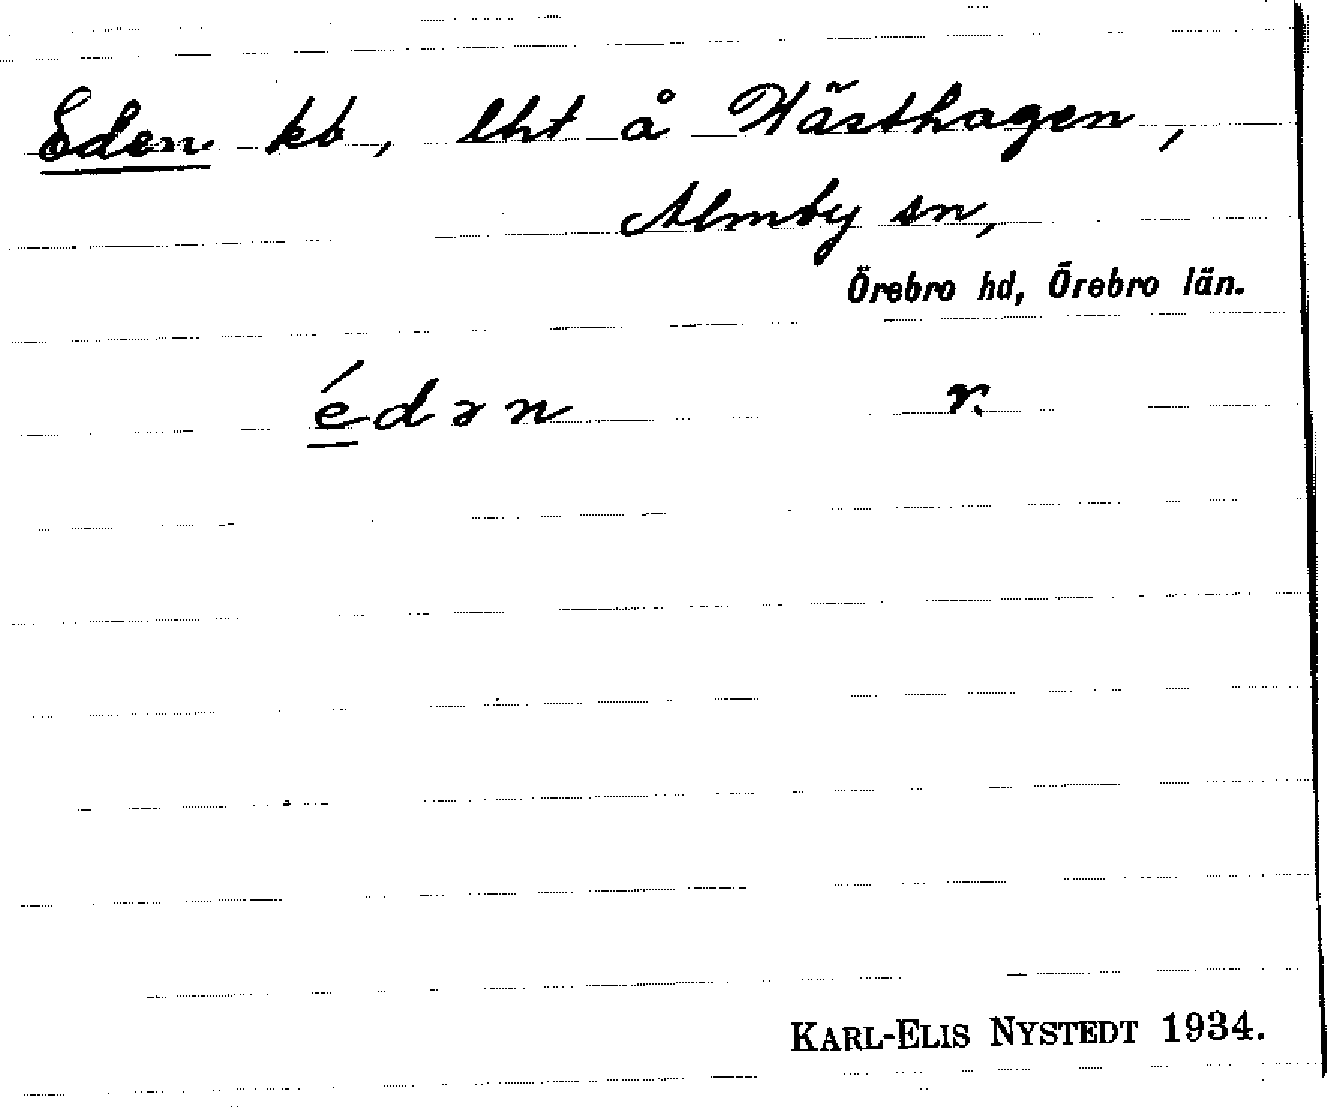 Eden kb, lht å Västhagen,
Almby sn,
Örebro hd, Örebro län.
édən r.
KARL-ELIS NYSTEDT 1934.